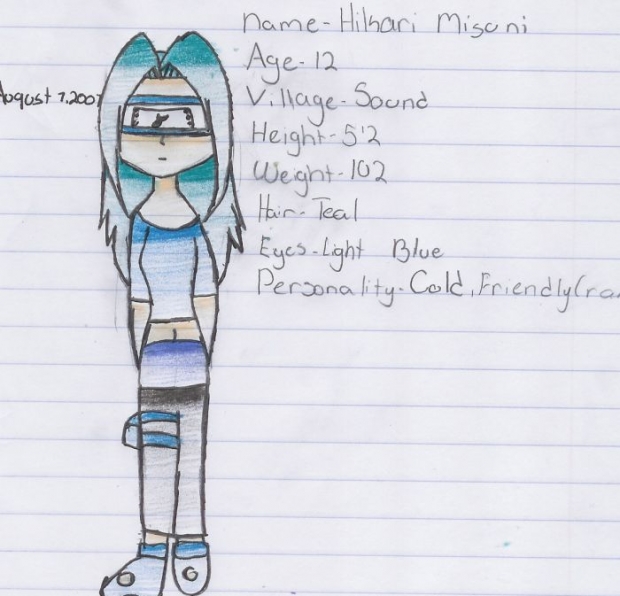 name- Hikari
August 7,2007
Age- 12
Village- Sound
Height- 5'2
Weight- 102
Hair- Teal
Eyes- Light Blue
Personality- Cold, Friendly(ra